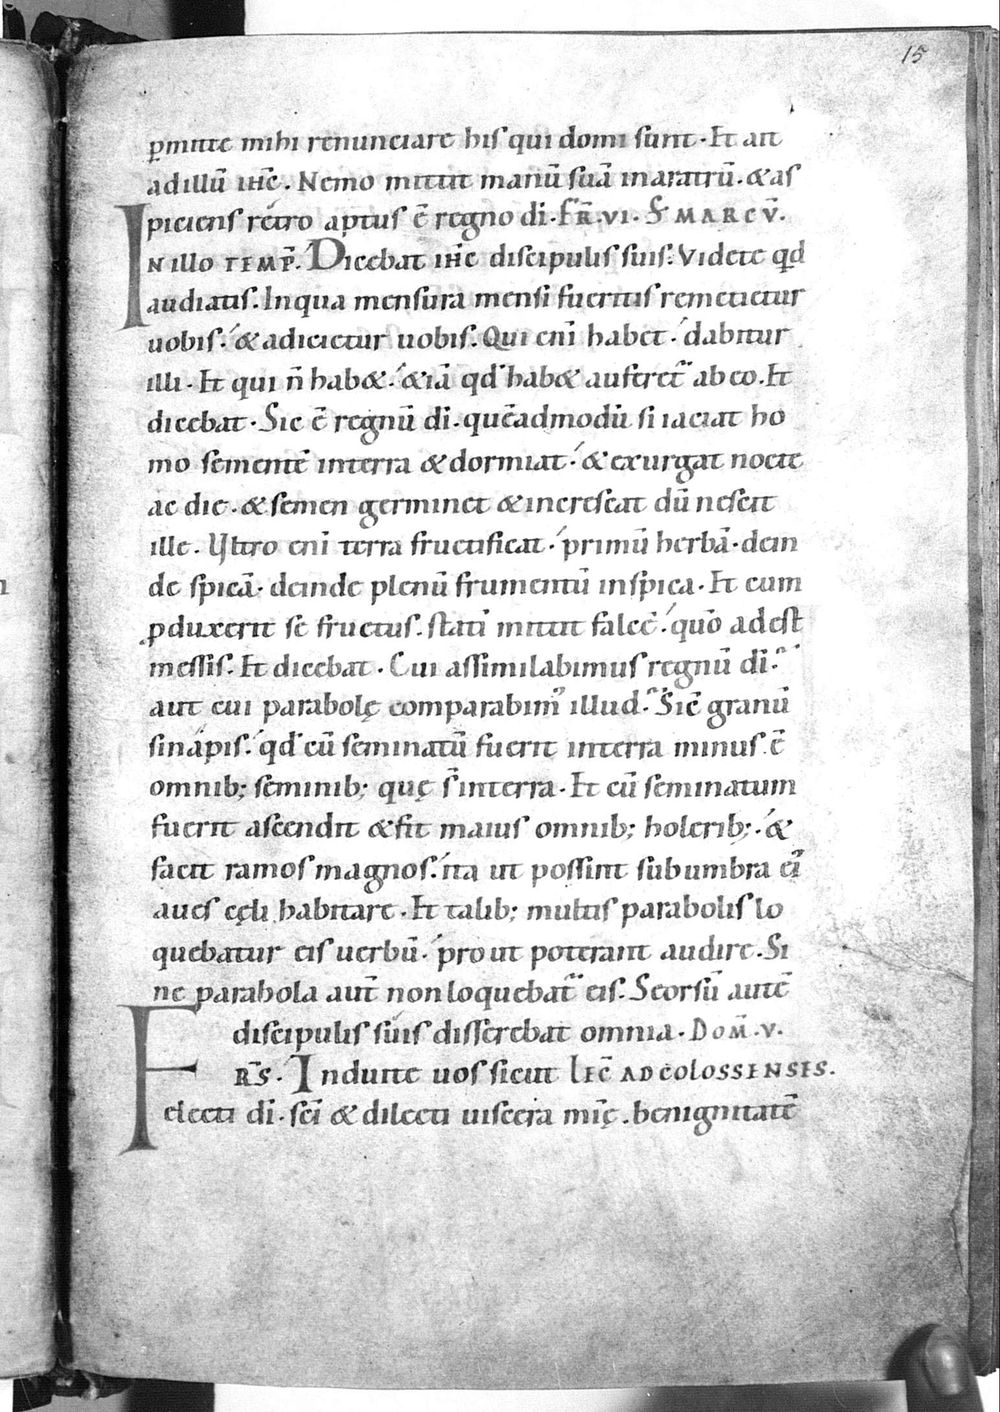 15
ꝑmitte mihi renunciare his qui domi sunt · Et ait
ad illū ihc̄ . Nemo mittit manū suā in aratrū · & as
piciens retro aptus ē regno dī · FR̄ · VI · S̄ MARCV̄ .
IN illo TEMP̄ . Dicebat ihc̄ discipulis suis : Videte qd
audiatis . In qua mensura mensi fueritis remetietur
uobis . & adicietur uobis . Qui enī habet · dabitur
illi · Et qui n̄ hab& · &iā qd hab& auferet᷑ ab eo . Et
dicebat · Sic ē regnū dī . quēadmodū si iaciat ho
mo sementē in terra & dormiat · & exurgat nocte
ac die · & semen germinet & increscat dū nescit
ille . Vltro enī terra fructificat · primū herbā · dein
de spicā · deinde plenū frumentū in spica · Et cum
ꝓduxerit se fructus . statī mittit falcē · quō adest
messis . Et dicebat . Cui assimilabimus regnū dī ·
aut cui parabolę comparabim᾽ illud · Sic̄ granū
sinapis . qd cū seminatū fuerit in terra minus ē
omnib; seminib; quę s̄ in terra · Et cū seminatum
fuerit ascendit & fit maius omnib; holerib; · &
facit ramos magnos . ita ut possint sub umbra ei᾽
aues cęli habitare · Et talib; multis parabolis lo
quebatur eis uerbū · prout poterant audire . Si
ne parabola aut̄ non loquebat᷑ eis . Seorsū autē
discipulis suis disserebat omnia . DOM̄ . V .
RS̄ . Induite uos sicut LEC̄ AD COLOSSENSES .
F electi dī · scī & dilecti uiscera mīę . benignitatē